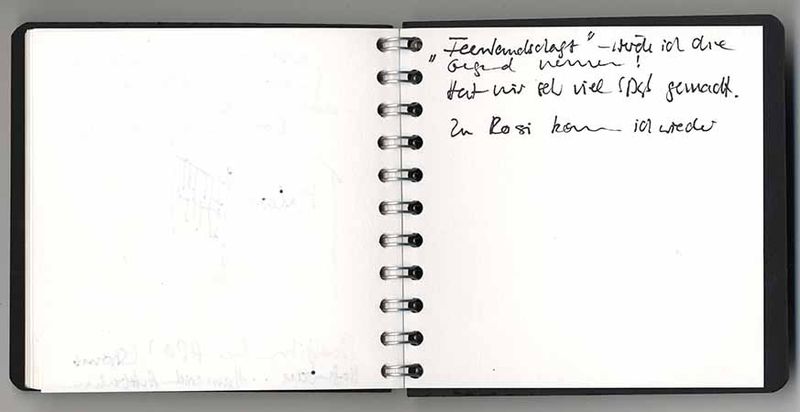 „Feenlandschaft" – würde ich die
Gegend nennen!
Hat mir sehr viel Spaß gemacht.
Zu Rosi komm ich wieder